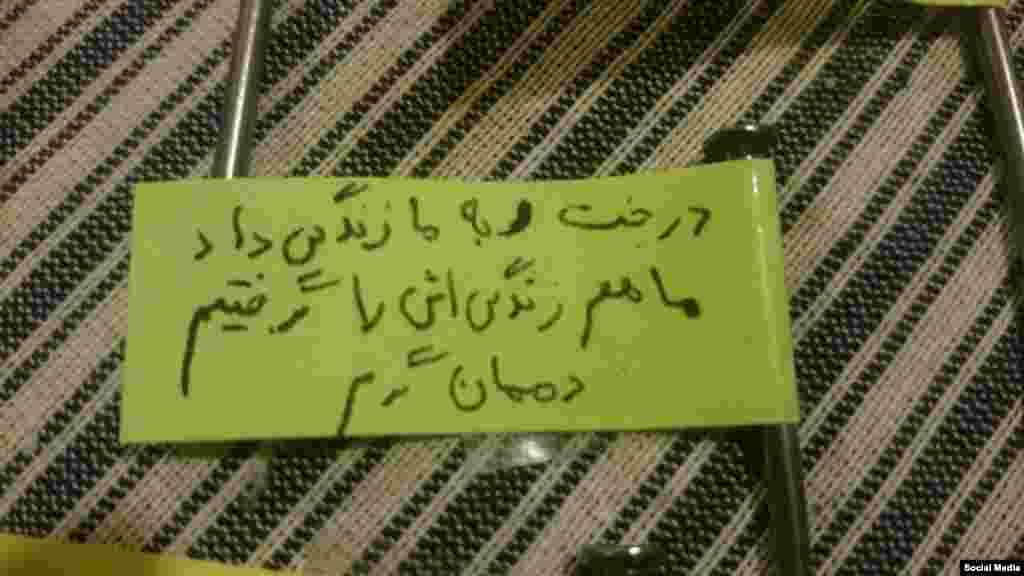 درخت به ما زندگی داد
ما هم زندگی اش را گرفتیم
دممان گرم
Social Media